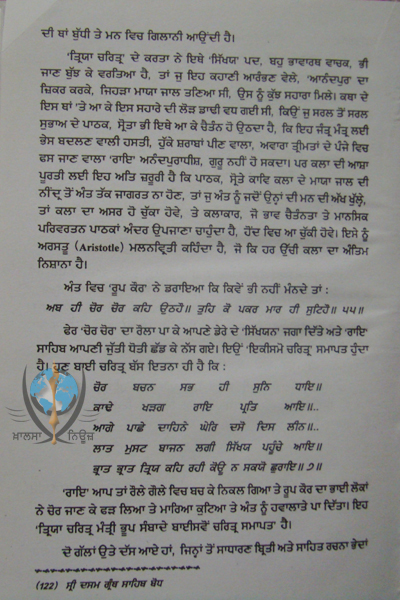 ਦੀ ਥਾਂ ਬੁੱਧੀ ਤੇ ਮਨ ਵਿਚ ਗਿਲਾਨੀ ਆਉਂਦੀ ਹੈ।
'ਤ੍ਰਿਯਾ ਚਰਿਤ੍ਰ' ਦੇ ਕਰਤਾ ਨੇ ਇਥੇ 'ਸਿੱਖਯ' ਪਦ, ਬਹੁ ਭਾਵਾਰਥ ਵਾਚਕ, ਭੀ
ਜਾਣ ਬੁੱਝ ਕੇ ਵਰਤਿਆ ਹੈ, ਤਾਂ ਜੁ ਇਹ ਕਹਾਣੀ ਆਰੰਭਣ ਵੇਲੇ, 'ਆਨੰਦਪੁਰ' ਦਾ
ਜ਼ਿਕਰ ਕਰਕੇ, ਜਿਹੜਾ ਮਾਯਾ ਜਾਲ ਤਣਿਆ ਸੀ, ਉਸ ਨੂੰ ਕੁੱਝ ਸਹਾਰਾ ਮਿਲੇ। ਕਥਾ ਦੇ
ਇਸ ਥਾਂ 'ਤੇ ਆ ਕੇ ਇਸ ਸਹਾਰੇ ਦੀ ਲੋੜ ਡਾਢੀ ਵਧ ਗਈ ਸੀ, ਕਿਉਂ ਜੁ ਸਰਲ ਤੋਂ ਸਰਲ
ਸੁਭਾਅ ਦੇ ਪਾਠਕ, ਸ੍ਰੋਤਾ ਭੀ ਇਥੇ ਆ ਕੇ ਚੈਤੰਨ ਹੋ ਉਠਦਾ ਹੈ, ਕਿ ਇਹ ਜੰਤ੍ਰ ਮੰਤ੍ਰ ਲਈ
ਭੇਸ ਬਦਲਣ ਵਾਲੀ ਹਸਤੀ, ਹੁੱਕੇ ਸ਼ਰਾਬਾਂ ਪੀਣ ਵਾਲਾ, ਅਵਾਰਾ ਤ੍ਰੀਮਤਾਂ ਦੇ ਪੰਜੇ ਵਿਚ
ਫਸ ਜਾਣ ਵਾਲਾ 'ਰਾਇ' ਅਨੰਦਪੁਰਾਧੀਸ਼, ਗੁਰੂ ਨਹੀਂ ਹੋ ਸਕਦਾ। ਪਰ ਕਲਾ ਦੀ ਆਸ਼ਾ
ਪੂਰਤੀ ਲਈ ਇਹ ਅਤਿ ਜ਼ਰੂਰੀ ਹੈ ਕਿ ਪਾਠਕ, ਸ੍ਰੋਤੇ ਕਾਵਿ ਕਲਾ ਦੇ ਮਾਯਾ ਜਾਲ ਦੀ
ਨੀਂਦ੍ਰ ਤੋਂ ਅੰਤ ਤੱਕ ਜਾਗਰਤ ਨਾ ਹੋਣ, ਤਾਂ ਜੁ ਅੰਤ ਨੂੰ ਜਦੋਂ ਉਨ੍ਹਾਂ ਦੀ ਮਨ ਦੀ ਅੱਖ ਖੁੱਲ੍ਹੇ,
ਤਾਂ ਕਲਾ ਦਾ ਅਸਰ ਹੋ ਚੁੱਕਾ ਹੋਵੇ, ਤੇ ਕਲਾਕਾਰ, ਜੋ ਭਾਵ ਚੈਤੰਨਤਾ ਤੇ ਮਾਨਸਿਕ
ਪਰਿਵਰਤਨ ਪਾਠਕਾਂ ਅੰਦਰ ਉਪਜਾਣਾ ਚਾਹੁੰਦਾ ਹੈ, ਹੋਂਦ ਵਿਚ ਆ ਚੁੱਕੀ ਹੋਵੇ। ਇਸੇ ਨੂੰ
ਅਰਸਤੂ (Aristotle) ਮਲਨਵ੍ਰਿਤੀ ਕਹਿੰਦਾ ਹੈ, ਜੋ ਕਿ ਹਰ ਉੱਚੀ ਕਲਾ ਦਾ ਅੰਤਿਮ
ਨਿਸ਼ਾਨਾ ਹੈ।
ਅੰਤ ਵਿਚ 'ਰੂਪ ਕੌਰ' ਨੇ ਡਰਾਇਆ ਕਿ ਕਿਵੇਂ ਭੀ ਨਹੀਂ ਮੰਨਦੇ ਤਾਂ :
ਅਬ ਹੀ ਚੋਰ ਚੋਰ ਕਹਿ ਉਠਹੋਂ॥ ਤੁਹਿ ਕੋ ਪਕਰ ਮਾਰ ਹੀ ਸੁਟਿਹੋਂ॥ ੫੫॥
ਫੇਰ 'ਚੋਰ ਚੋਰ' ਦਾ ਰੌਲਾ ਪਾ ਕੇ ਆਪਣੇ ਡੇਰੇ ਦੇ 'ਸਿੱਖਯਨ' ਜਗਾ ਦਿੱਤੇ ਅਤੇ 'ਰਾਇ'
ਸਾਹਿਬ ਆਪਣੀ ਜੁੱਤੀ ਧੋਤੀ ਛੱਡ ਕੇ ਨੱਸ ਗਏ। ਇਉਂ 'ਇਕੀਸਮੋ ਚਰਿਤ੍ਰ' ਸਮਾਪਤ ਹੁੰਦਾ
ਹੈ। ਹੁਣ ਬਾਈ ਚਰਿਤ੍ਰ ਬੱਸ ਇਤਨਾ ਹੀ ਹੈ ਕਿ :
ਚੋਰ ਬਚਨ ਸਭ ਹੀ ਸੁਨਿ ਧਾਇ॥
ਕਾਢੇ ਖੜਗ ਰਾਇ ਪ੍ਰਤਿ ਆਇ॥..
ਆਗੇ ਪਾਛੇ ਦਾਹਿਨੇ ਘੇਰਿ ਦਸੋ ਦਿਸ ਲੀਨ॥..
ਲਾਤ ਮੁਸਟ ਬਾਜਨ ਲਗੀ ਸਿੱਖਯ ਪਹੁੰਚੇ ਆਇ॥
ਭ੍ਰਾਤ ਭ੍ਰਾਤ ਤ੍ਰਿਯ ਕਹਿ ਰਹੀ ਕੋਊ ਨ ਸਕਯੋ ਛੁਰਾਇ॥ ੭॥
'ਰਾਇ' ਆਪ ਤਾਂ ਰੌਲੇ ਗੌਲੇ ਵਿਚ ਬਚ ਕੇ ਨਿਕਲ ਗਿਆ ਤੇ ਰੂਪ ਕੌਰ ਦਾ ਭਾਈ ਲੋਕਾਂ
ਨੇ ਚੋਰ ਜਾਣ ਕੇ ਫੜ ਲਿਆ ਤੇ ਮਾਰਿਆ ਕੁਟਿਆ ਤੇ ਅੰਤ ਨੂੰ ਹਵਾਲਾਤੇ ਪਾ ਦਿੱਤਾ। ਇਹ
'ਤ੍ਰਿਯਾ ਚਰਿਤ੍ਰ ਮੰਤ੍ਰੀ ਭੂਪ ਸੰਬਾਦੇ ਬਾਈਸਵੋਂ ਚਰਿਤ੍ਰ ਸਮਾਪਤਾ ਹੈ।
ਦੋ ਗੱਲਾਂ ਉਤੇ ਦੱਸ ਆਏ ਹਾਂ, ਜਿਨ੍ਹਾਂ ਤੋਂ ਸਾਧਾਰਣ ਬ੍ਰਿਤੀ ਅਤੇ ਸਾਹਿਤ ਰਚਨਾ ਭੇਦਾਂ
(122) ਸ੍ਰੀ ਦਸਮ ਗ੍ਰੰਥ ਸਾਹਿਬ ਬੋਧ
ਖ਼ਾਲਸਾ ਨਿਊਜ਼